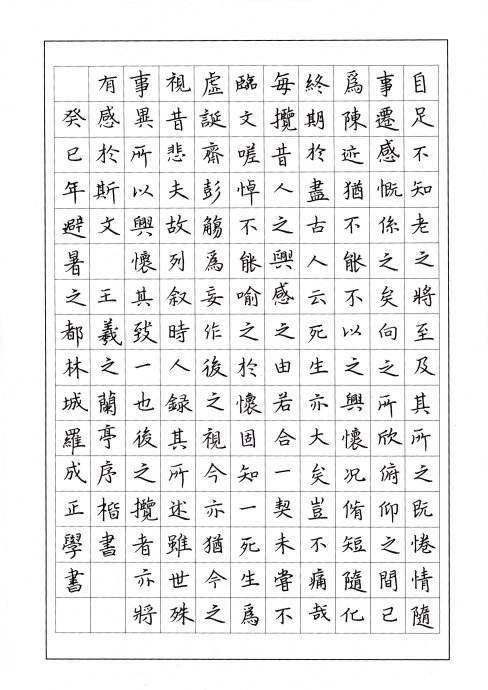 自足不知老之將至及其所之既惓情隨
事遷感慨係之矣向之所欣俯仰之間已
爲陳迹猶不能不以之興懷況脩短隨化
終期於盡古人云死生亦大矣豈不痛哉
每攬昔人之興感之由若合一契未嘗不
臨文嗟悼不能喻之於懷固知一死生爲
虛誕齊彭殤爲妄作後之視今亦猶今之
視昔悲夫故列敘時人録其所述雖世殊
事異所以興懷其致一也後之攬者亦將
有感於斯文 王羲之蘭亭序楷書
癸巳年避暑之都林城羅成正學書